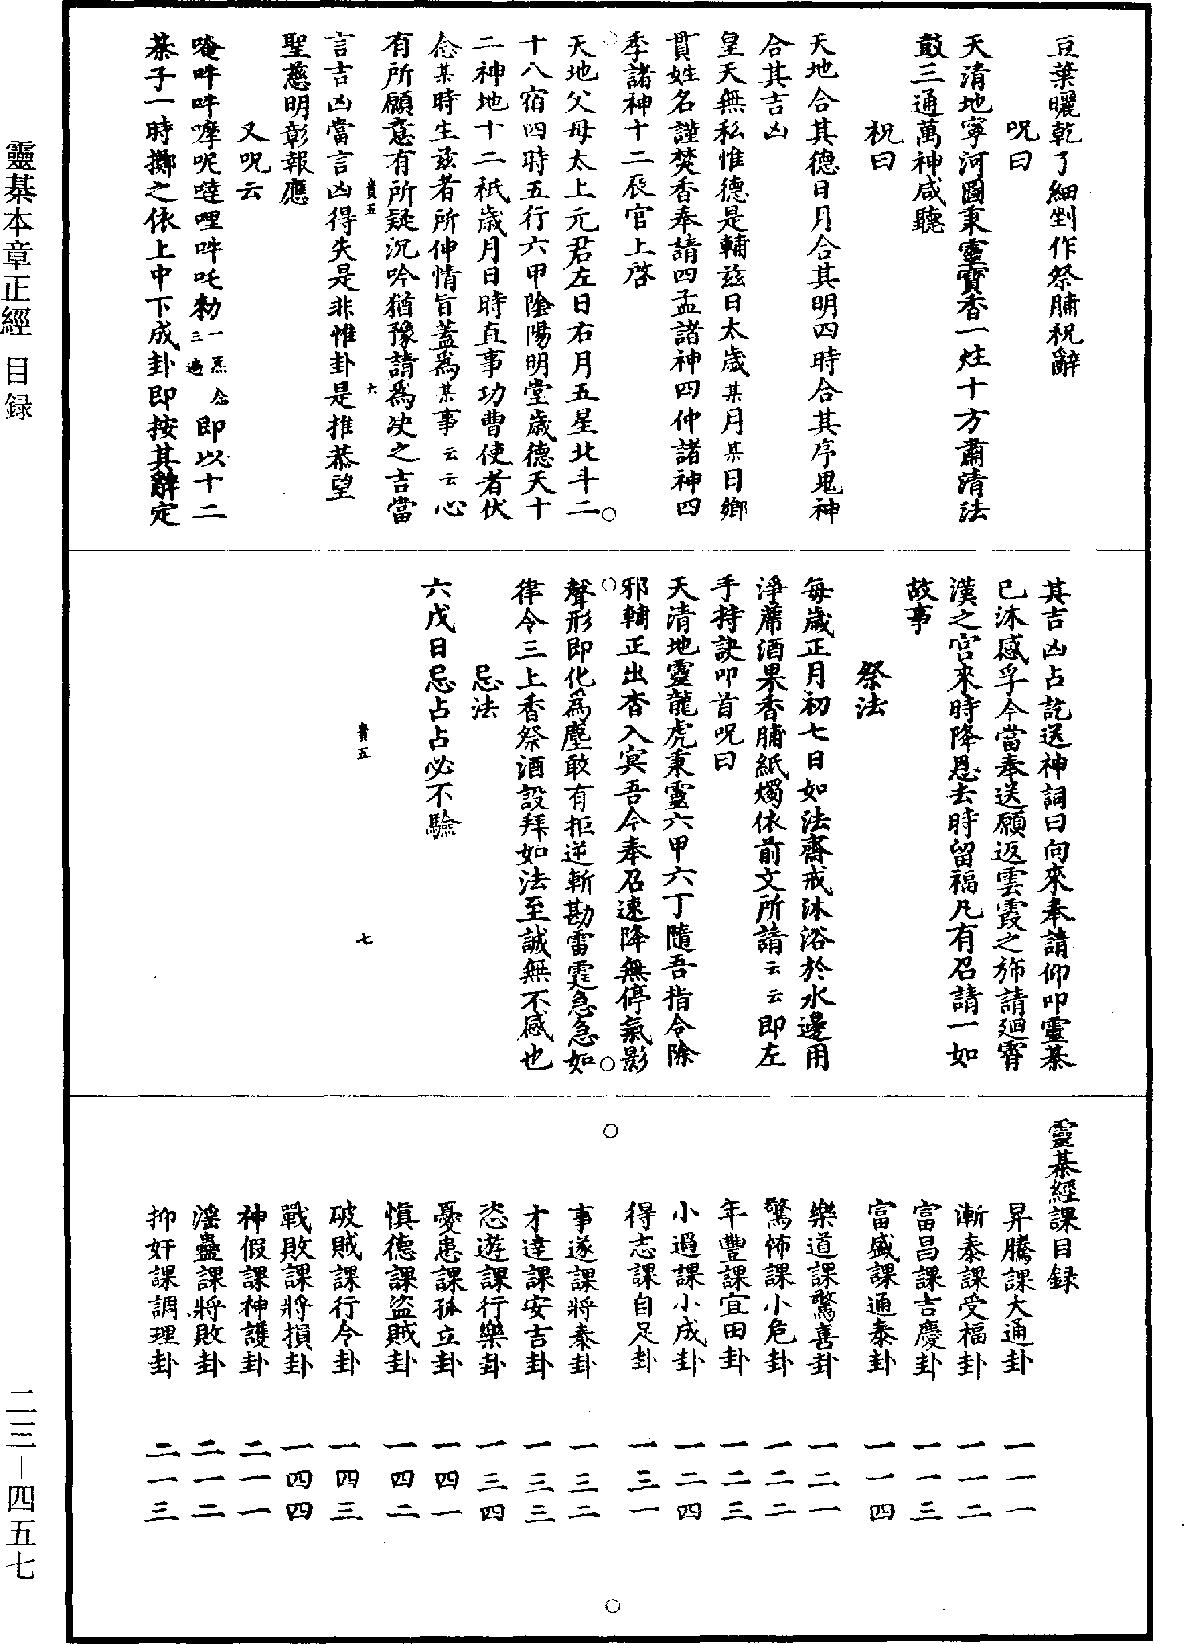 豆葉曬乾了細剉作祭脯祝辭
呪曰
天清地寧河圖秉靈寶香一炷十方肅清法
鼓三通萬神咸聽
祝曰
天地合其德日月合其明四時合其序鬼神
合其吉凶
皇天無私惟德是輔茲日太歲某月某日鄉
貫姓名謹焚香奉請四孟諸神四仲諸神四
季諸神十二辰官上啓
天地父母太上元君左日右月五星北斗二
十八宿四時五行六甲陰陽明堂歲德天十
二神地十二祇歲月日時直事功曹使者伏
念某時生茲者所伸情旨蓋爲某事云云心
有所願意有所疑沉吟猶豫請爲决之吉當
言吉凶當言凶得失是非惟卦是推恭望
聖慈明彰報應
又呪云
唵吽吽嚤呢噠哩吽吒勑一炁念三遍即以十二
棊子一時擲之依上中下成卦即按其辭定
貴五 六
其吉凶占訖送神詞曰向來奉請仰叩靈棊
已沐感孚今當奉送願返雲霞之斾請廻霄
漢之宮來時降恩去時留福凡有召請一如
故事
祭法
每歲正月初七日如法齋戒沐浴於水邊用
淨蓆酒果香脯紙燭依前文所請云云即左
手持訣叩首呪曰
天清地靈龍虎秉靈六甲六丁隨吾指令除
邪輔正出杳入冥吾今奉召速降無停氣影
聲形即化爲塵敢有拒逆斬勘雷霆急急如
律令三上香祭酒設拜如法至誠無不感也
忌法
六戊日忌占占必不驗
貴五 七
靈棊經課目録
昇騰課大通卦 一一一
漸泰課受福卦 一一二
富昌課吉慶卦 一一三
富盛課通泰卦 一一四
樂道課驚喜卦 一二一
驚怖課小危卦 一二二
年豐課宜田卦 一二三
小過課小成卦 一二四
得志課自足卦 一三一
事遂課將泰卦 一三二
才達課安吉卦 一三三
恣遊課行樂卦 一三四
憂患課孤立卦 一四一
慎德課盜賊卦 一四二
破賊課行令卦 一四三
戰敗課將損卦 一四四
神假課神護卦 二一一
滛蠱課將敗卦 二一二
抑奸課調理卦 二一三
靈棊本章正經 目録
二三－四五七